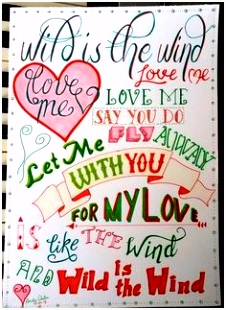 wild is the wind
love me
love me
LOVE ME
SAY YOU DO
FLY AWAY
Let Me
WITH YOU
FOR MY LOVE
IS like THE Wind
AND Wild is the Wind